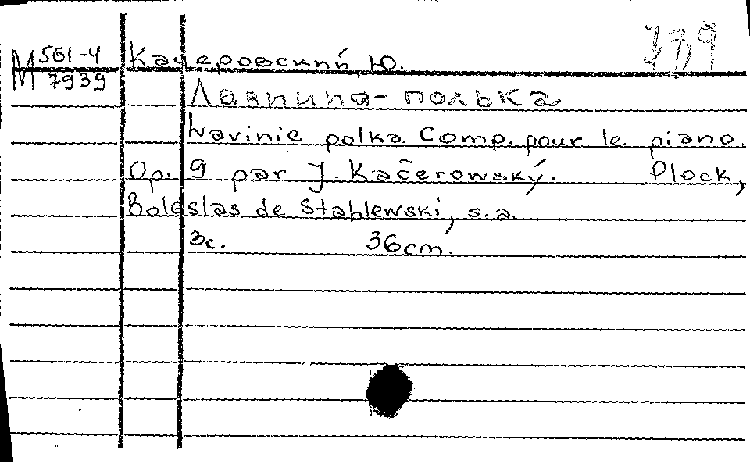 М 561-4 Качеровский, Ю.
М 7939
Лавиниа-полька
Lavinie polka. Comp. pour le piano.
Op. 9 par J. Kačerowský. Plock,
Boleslas de Stablewski, s.a.
3с. 36cm.